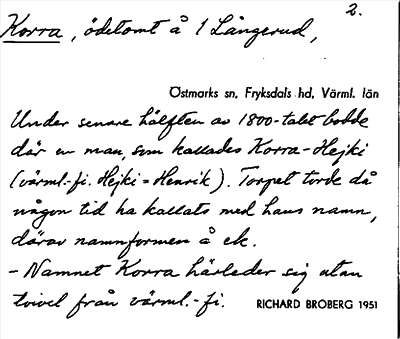 2.
Korra, ödetomt å 1 Långerud,
Östmarks sn, Fryksdals hd, Värml. län
Under senare hälften av 1800-talet bodde
där en man, som kallades Korra-Hejki
(värml.-fi. Hejki = Henrik). Torpet torde då
någon tid ha kallats med hans namn,
därav namnformen å ek.
- Namnet Korra härleder sig utan
tvivel från värml.-fi.
RICHARD BROBERG 1951